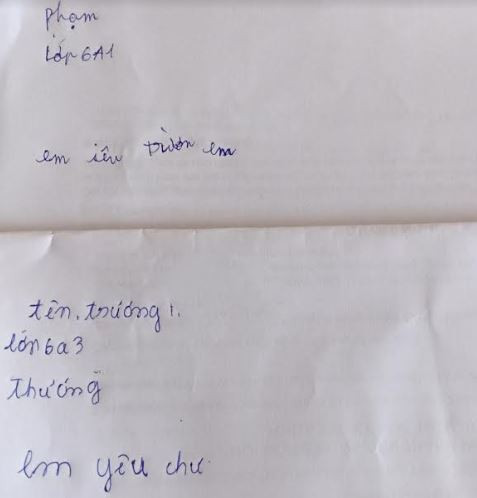 phạm
Lớp 6A1
em iêu trườn em
tên. trướng 1.
lớp 6a3
Thướng
em yêu chư